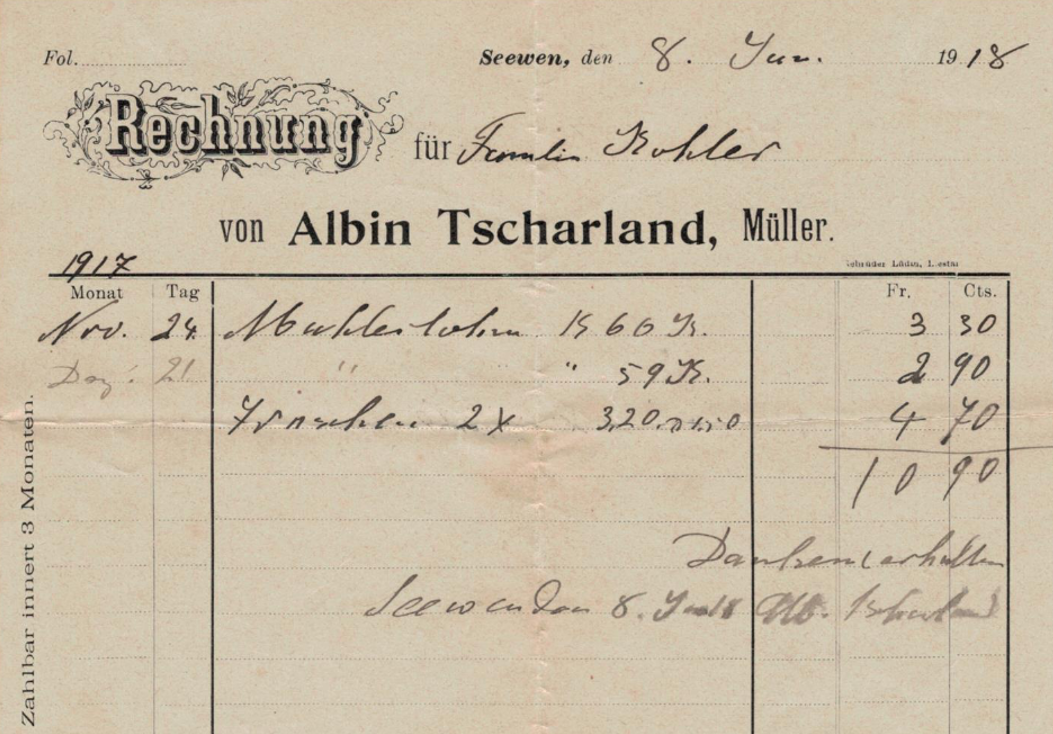 Fol.
Seewen, den 8. Jan. 1918
Rechnung für Familie Kohler
von Albin Tscharland, Müller.
1917
Monat Tag Fr. Cts.
Nov. 24. Mahlerlohn 60 K. 3 30
Dez. 21. " " 59 K. 2 90
2 X 3,20 1.50 4 70
10 90
Dankend erhalten
Seewen den 8. Jan 18 Alb. Tscharland
Zahlbar innert 3 Monaten.